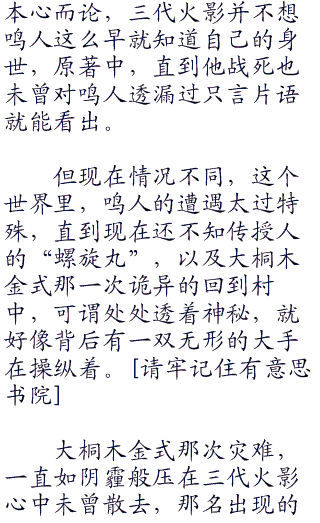 本心而论，三代火影并不想
鸣人这么早就知道自己的身
世，原著中，直到他战死也
未曾对鸣人透漏过只言片语
就能看出。
但现在情况不同，这个
世界里，鸣人的遭遇太过特
殊，直到现在还不知传授人
的“螺旋丸”，以及大桐木
金式那一次诡异的回到村
中，可谓处处透着神秘，就
好像背后有一双无形的大手
在操纵着。[请牢记住有意思
书院]
大桐木金式那次灾难，
一直如阴霾般压在三代火影
心中未曾散去，那名出现的